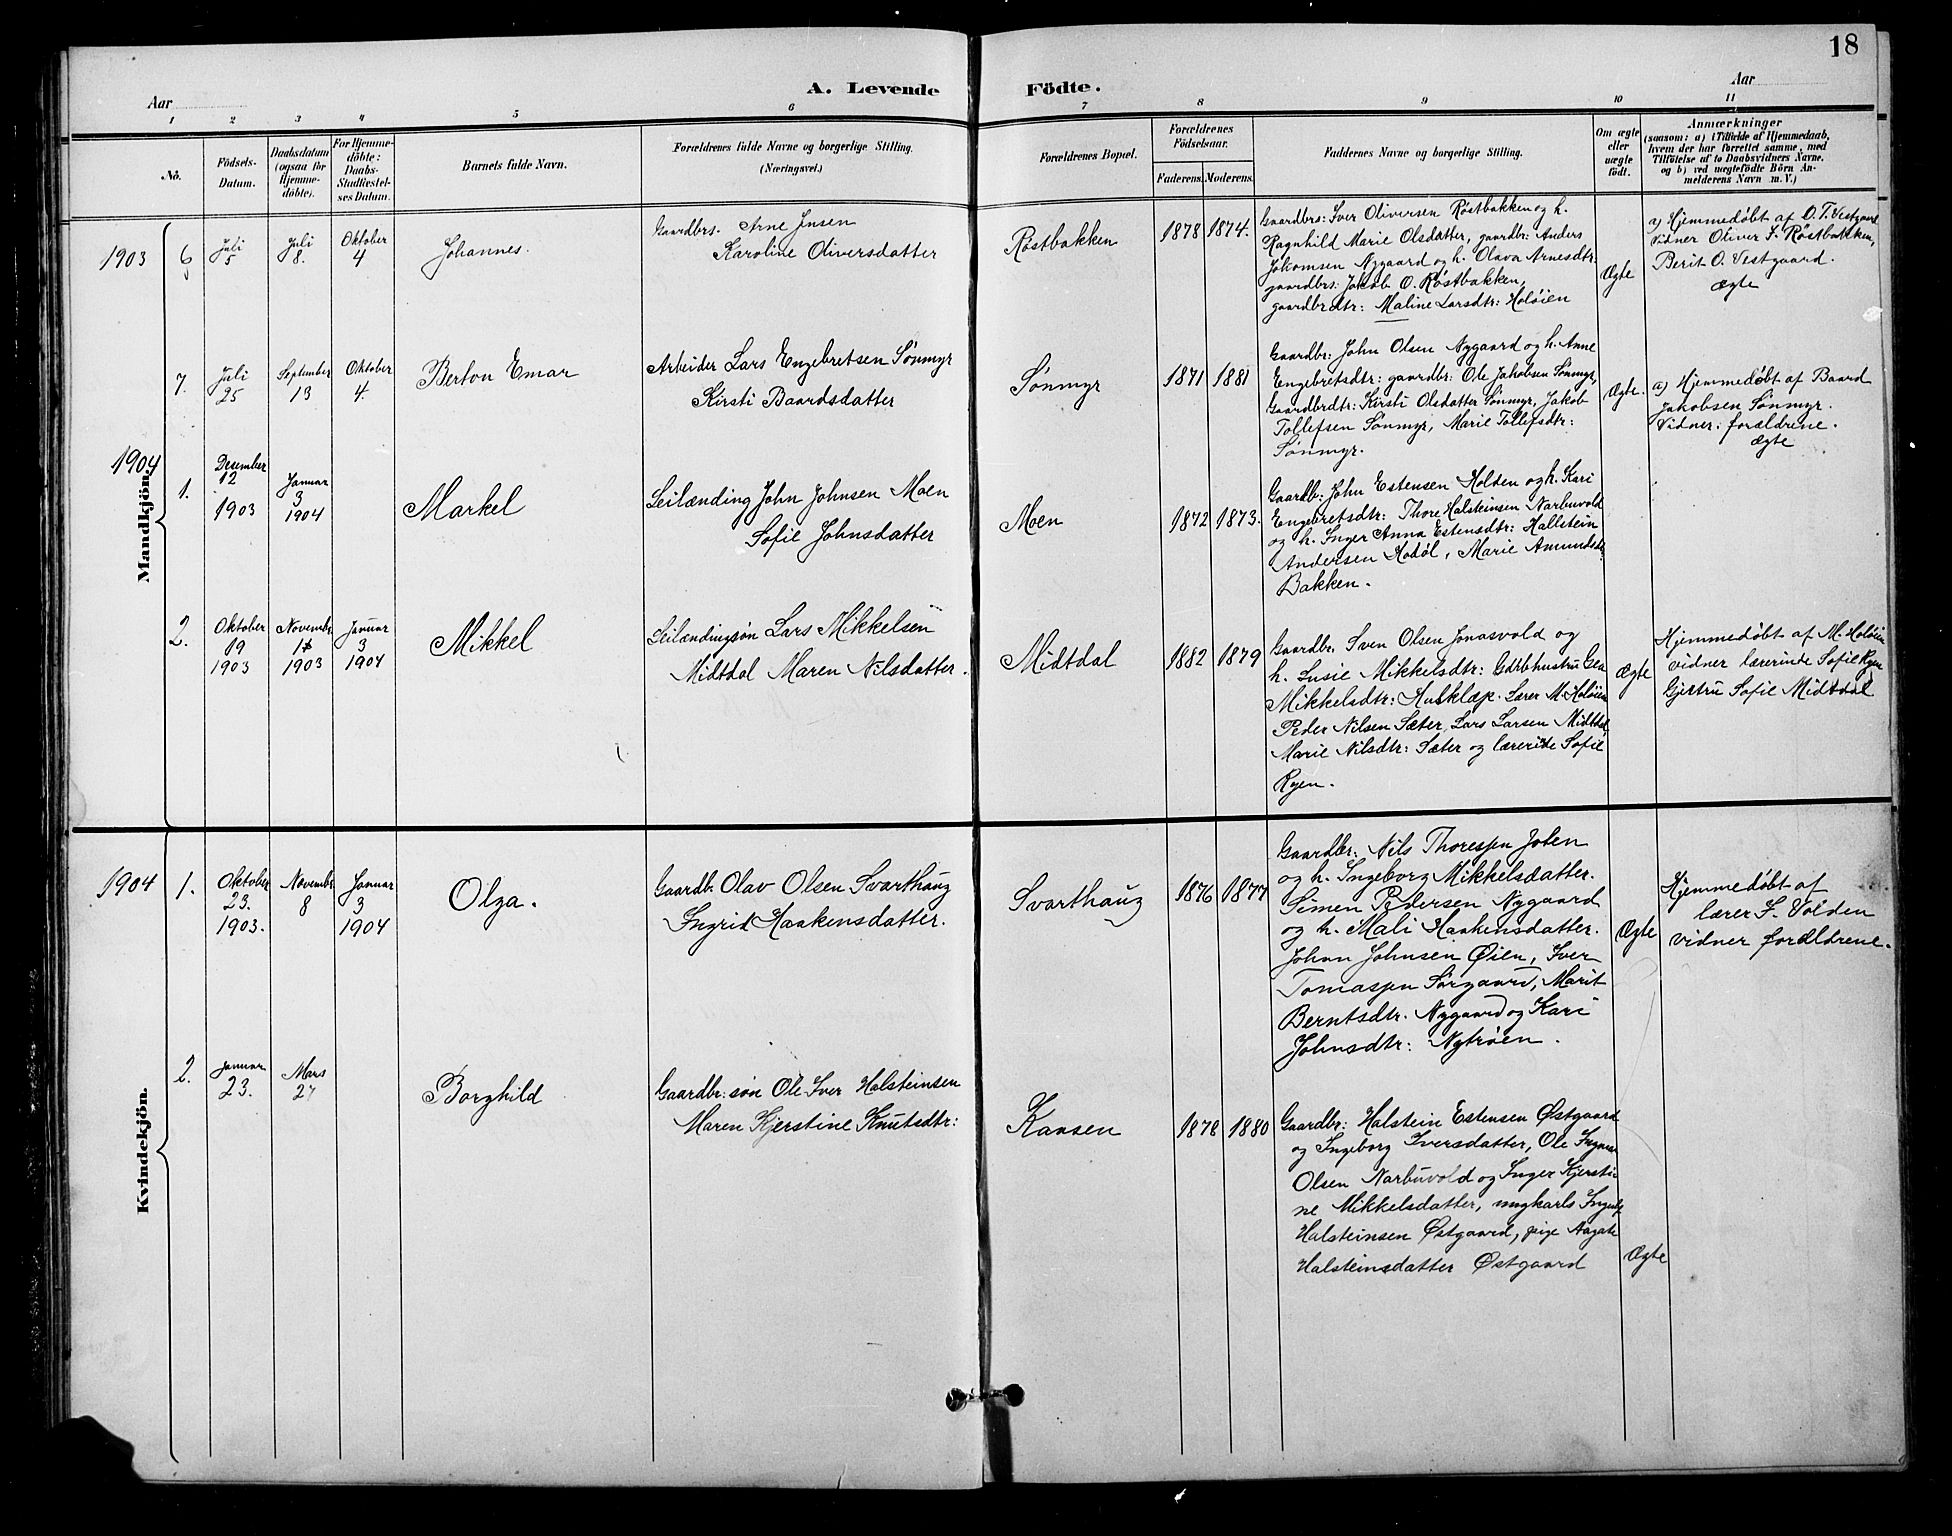 18
A. Levende Födte.
Aar
Aar
1 2 3 4 5 6 7 8 9 10 11
No.
Födsels-
Datum.
Daabsdatum
(ogsaa for
Hjemme-
döbte).
For Hjemme-
döbte:
Daabs-
Stadfæstel-
ses Datum.
Barnets fulde Navn.
Forældrenes fulde Navne og borgerlige Stilling.
(Næringsvei.)
Forældrenes Bopæl.
Forældrenes
Födselsaar.
Faderens. Moderens.
Faddernes Navne og borgerlige Stilling.
Om ægte
eller
uægte
födt.
Anmærkninger
(saasom: a) i Tilfælde af Hjemmedaab,
hvem der har forrettet samme, med
Tilföielse af to Daabsvidners Navne,
og b) ved uægtefödte Börn An-
melderens Navn m. V.)
Mandkjön.
1903
6
Juli
5
Juli
8.
Oktober
4
Johannes.
Gaardbrs. Arne Jnsen
Karoline Oliversdatter
Røstbakken
1878 1874.
Gaardbrs: Iver Oliversen Røstbakken og h.
Ragnhild Marie Olsdatter, gaardbr: Anders
Jokomsen Nygaard og h. Olava Arnesdtr.
gaardbrs: Jakob O. Røstbakken,
gaardbrdtr: Maline Larsdtr: Holøien
Ægte
a) Hjemmedøbt af O. T. Vestgaard
Vidner Oliver I. Røstbakken,
Berit O. Vestgaard.
Ægte
7.
Juli
25
September
13
Oktober
4.
Berton Emar
Arbeider Lars Engebretsen Sønmyr
Kirsti Baardsdatter
Sønmyr
1871 1881
Gaardbr: John Olsen Nygaard og h. Anne
Engebretsdtr: gaardbr: Ole Jakobsen Sønmyr,
Gaardbrdtr: Kirsti Olsdatter Sønmyr, Jakob
Tollefsen Sønmyr, Marie Tollefsdtr:
Sønmyr.
Ægte.
a) Hjemmedøbt af Baard
Jakobsen Sønmyr.
Vidner: forældrene.
Ægte
1904
1.
Desember
12
1903
Januar
3
1904
Markel
Leilænding John Johnsen Moen
Sofie Johnsdatter
Moen
1872 1873.
Gaardb: John Estensen Holden og h. Kari
Engebretsdtr: Thore Halsteinsen Narbuvold
og h. Inger Anna Estensdtr: Hallstein
Andersen Hodøl, Marie Amundsdt:
Bakken.
2.
Oktober
19
1903
Novembr
1903
Januar
3
1904
Mikkel
Leilændingsøn Lars Mikkelsen
Midtdal Maren Nilsdatter.
Midtdal
1882 1879
Gaardbr: Sven Olsen Jonasvold og
h. Lusie Mikkelsdtr: Gdrbhustru Gea
Mikkelsdtr: Hulklæp. Lærer M. Holøien
Peder Nilsen Sæter, Lars Larsen Midtdal,
Marie Nilsdtr: Sæter og lærerinde Sofie
Ryen.
Ægte
Hjemmedøbt af M. Holøien
vidner lærerinde Sofie Ryen
Gjertru Sofie Midtdal
Kvindekjön.
1904
1.
Oktober
23.
1903.
Novembr
8
Januar
3
1904
Olga.
Gaardb. Olav Olsen Svarthaug
Ingrid Haakensdatter.
Svarthaug
1876 1877
Gaardbr: Nils Thoresen Joten
og h. Ingeborg Mikkelsdatter.
Simen Pedersen Nygaard
og h. Mali Haakensdatter.
Johan Johnsen Øien, Iver
Tomassen Sørgaard, Marit
Berntsdtr. Nygaard og Kari
Johnsdtr: Nytrøen.
Ægte
Hjemmedøbt af
lærer I. Volden
vidner forældrene.
2.
Januar
23.
Mars
27
Borghild
Gaardbr: søn Ole Iver Halsteinsen
Maren Kjerstine Knutsdtr:
Kaasen
1878 1880
Gaardbr: Halstein Estensen Østgaard
og Ingeborg Iversdatter, Ole
Olsen Narbuvold og Inger Kjersti-
ne Mikkelsdatter, ungkarls
Halsteinsen Østgaard, pige Aagate
Halsteinsdatter Østgaard
Ægte